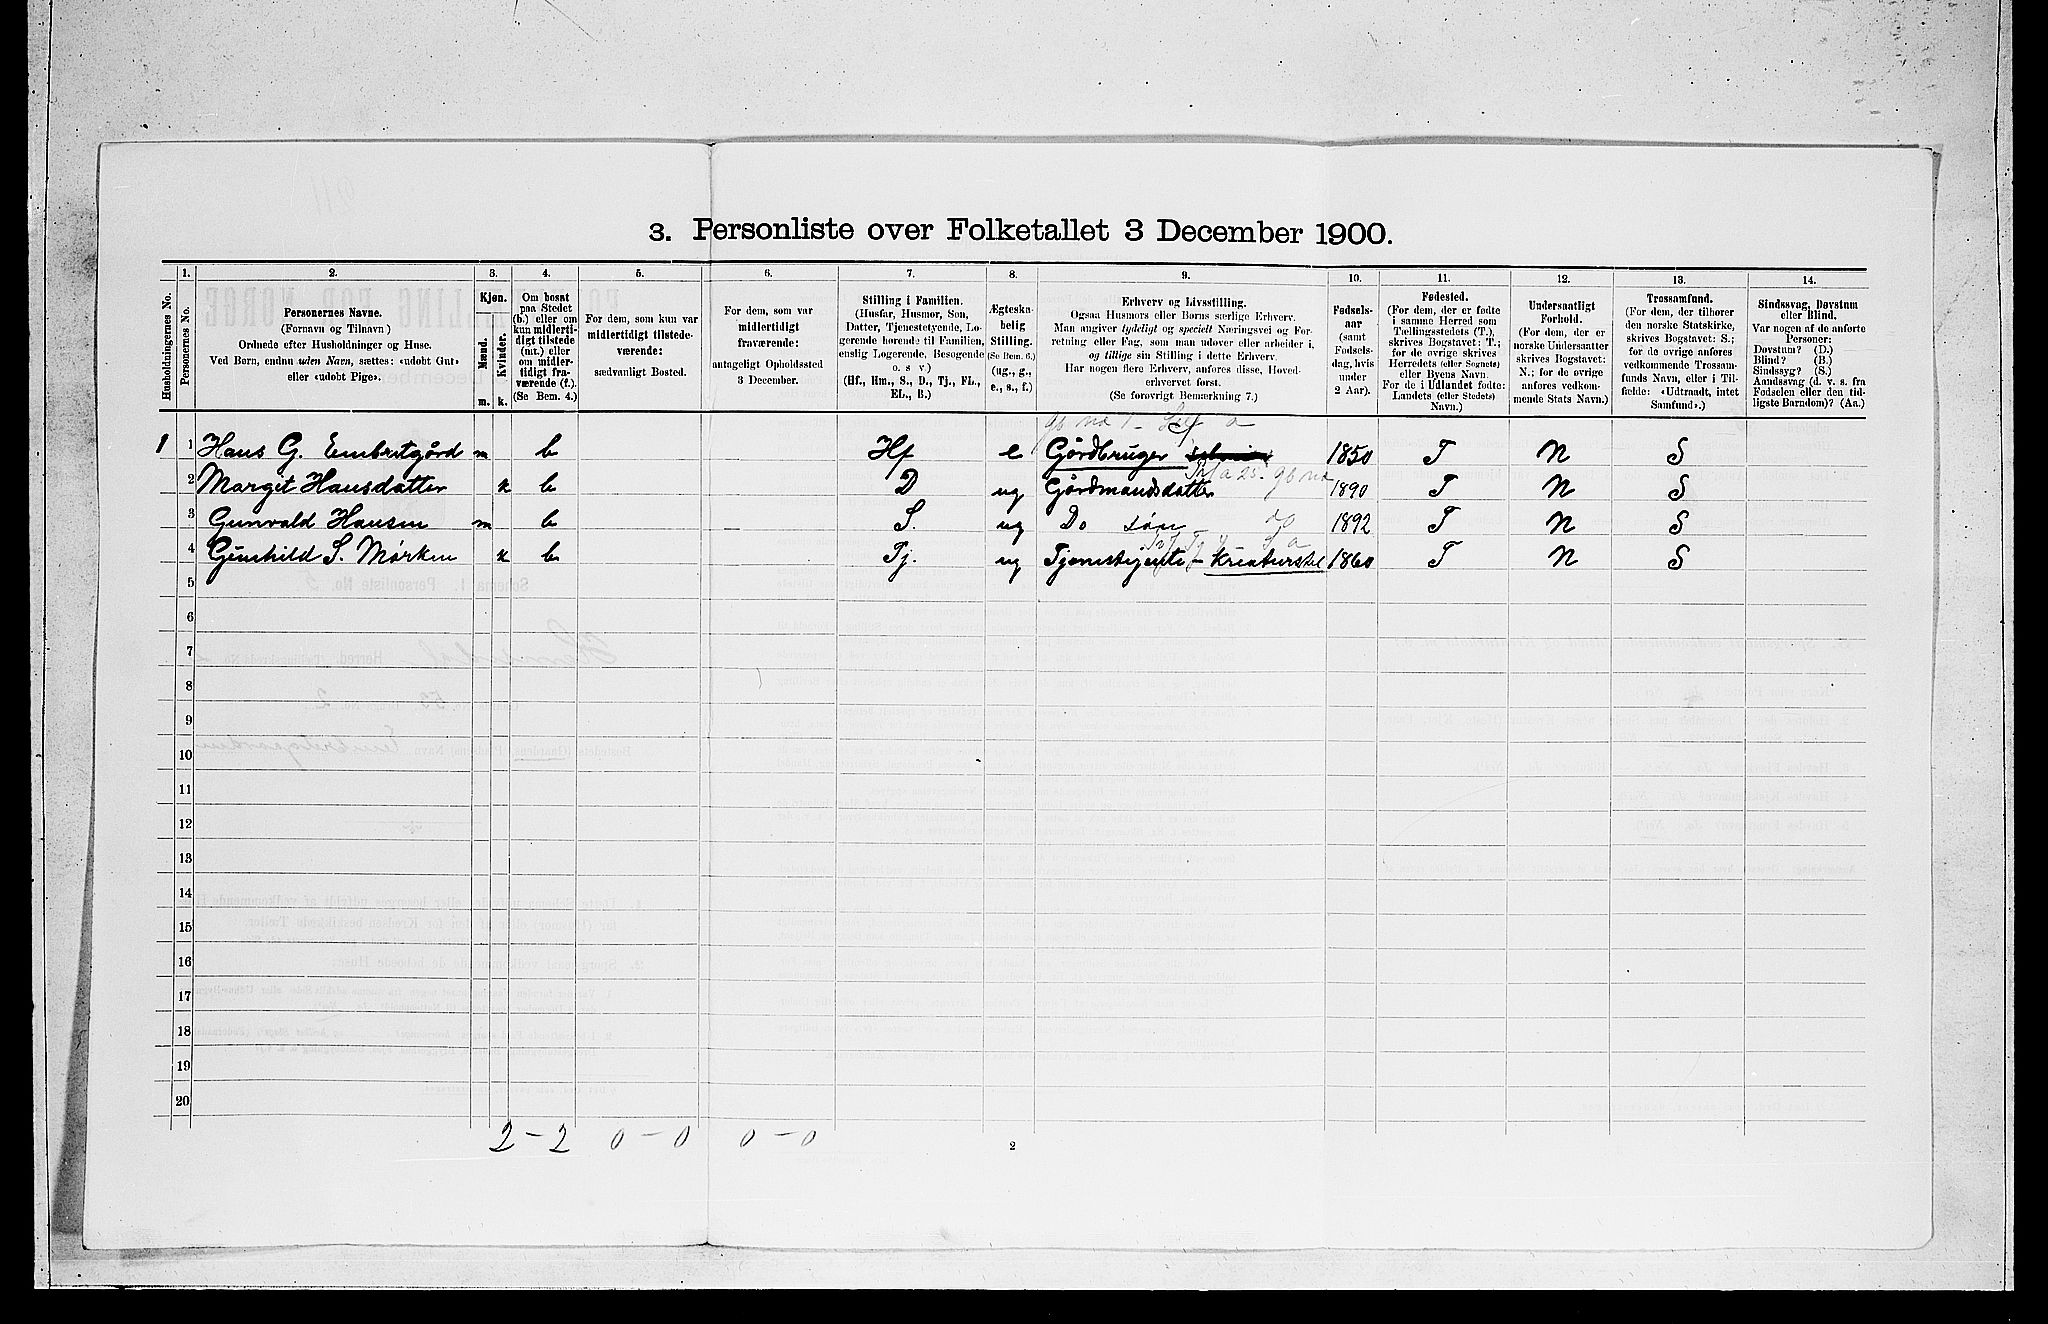 3. Personliste over Folketallet 3 December 1900.
1. 2. 3. 4. 5. 6. 7. 8. 9. 10. 11. 12. 13. 14.
Husholdningernes No.
Personernes No.
Personernes Navne.
(Fornavn og Tilnavn)
Ordnede efter Husholdninger og Huse.
Ved Børn, endnu uden Navn, sættes: «udøbt Gut»
eller «udøbt Pige».
Kjøn.
Mænd.
Kvinder.
m. k.
Om bosat
paa Stedet
(b.) eller om
kun midlerti-
digt tilstede
(mt.) eller
om midler-
tidigt fra-
værende (f.).
(Se Bem. 4.)
For dem, som kun var
midlertidigt tilstede-
værende:
sædvanligt Bosted.
For dem, som var
midlertidigt
fraværende:
antageligt Opholdssted
3 December.
Stilling i Familien.
(Husfar, Husmor, Søn,
Datter, Tjenestetyende, Lo-
gerende hørende til Familien,
enslig Logerende, Besøgende
o. s v.)
(Hf., Hm., S., D., Tj., FL.,
EL., B.)
Ægteska-
belig
Stilling.
(Se Bem. 6.)
(ug., g.,
e., s., f.)
Erhverv og Livsstilling.
Ogsaa Husmors eller Børns særlige Erhverv.
Man angiver tydeligt og specielt Næringsvei og For-
retning eller Fag, som man udøver eller arbeider i,
og tillige sin Stilling i dette Erhverv.
Har nogen flere Erhverv, anføres disse, Hoved-
erhvervet først.
(Se forøvrigt Bemærkning 7.)
Fødsels-
aar
(samt
Fødsels-
dag, hvis
under
2 Aar).
Fødested.
(For dem, der er fødte
i samme Herred som
Tællingsstedets (T.),
skrives Bogstavet: T.;
for de øvrige skrives
Herredets (eller Sognets)
eller Byens Navn.
For de i Udlandet fødte:
Landets (eller Stedets)
Navn.)
Undersaatligt
Forhold.
(For dem, der er
norske Undersaatter
skrives Bogstavet:
N.; for de øvrige
anføres vedkom-
mende Stats Navn.)
Trossamfund.
(For dem, der tilhører
den norske Statskirke,
skrives Bogstavet: S.;
for de øvrige anføres
vedkommende Trossam-
funds Navn, eller i Til-
fælde: «Udtraadt, intet
Samfund».)
Sindssvag, Døvstum
eller Blind.
Var nogen af de anførte
Personer:
Døvstum? (D.)
Blind? (B.)
Sindssyg? (S.)
Aandssvag (d. v. s. fra
Fødselen eller den tid-
ligste Barndom)? (Aa.)
1 1 Hans G. Embritgård m b Hf e Gårdbruger 1850 T N S
2 Margit Hansdatter k b D ug Gårdmandsdatter 1890 T N S
3 Gunvald Hansen m b S. ug Do søn 1892 T N S
4 Gunhild S. Mørken k b Tj. ug Tjenestejente - Kreaturstel 1860 T N S
5
6
7
8
9
10
11
12
13
14
15
16
17
18
19
20
2 - 2 0 - 0 0 - 0
2